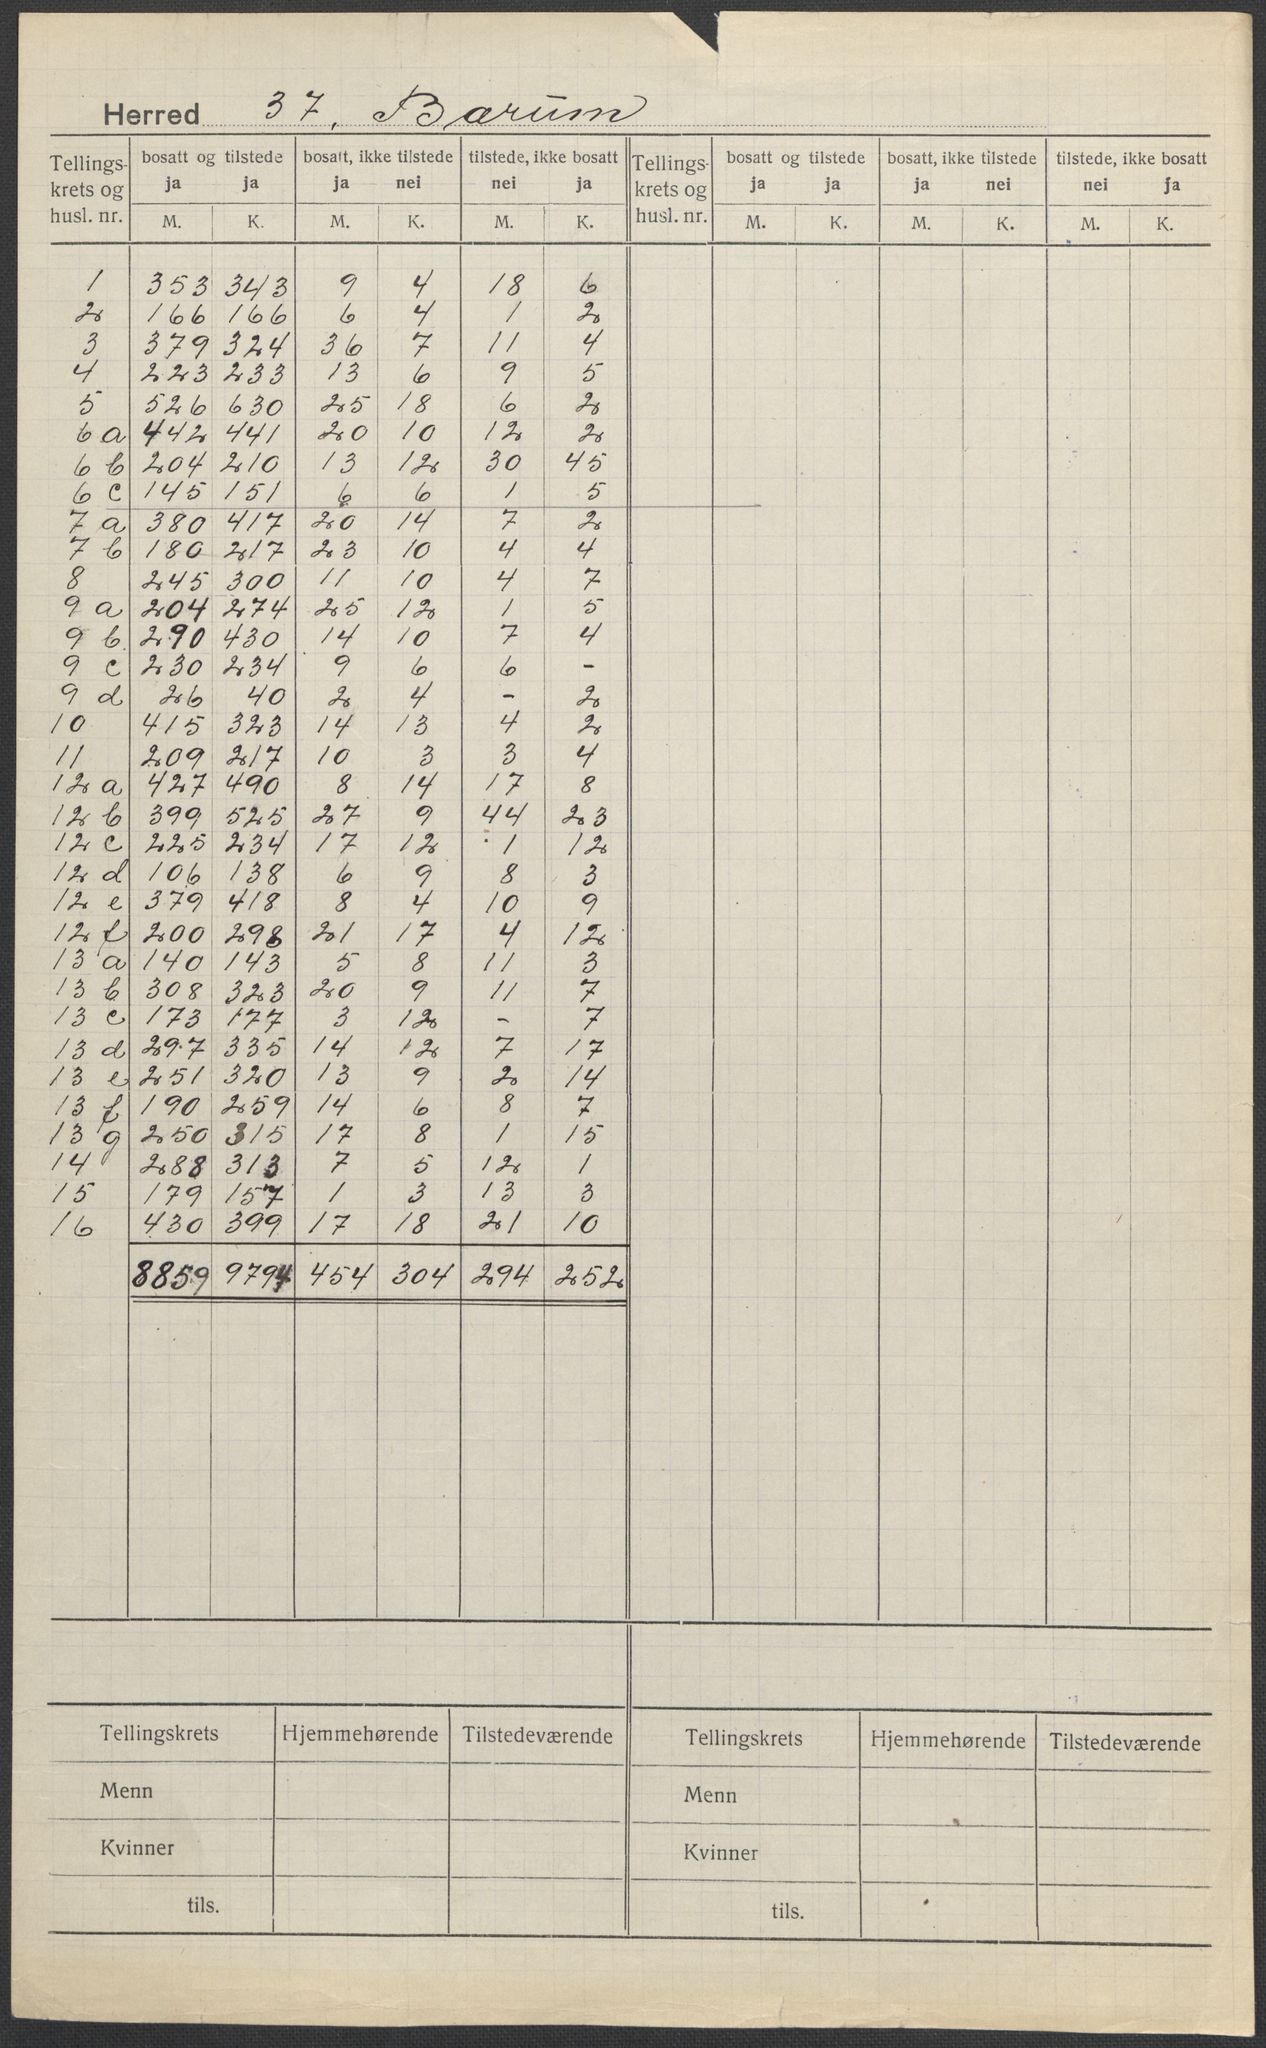 Herred 37. Bærum
Tellings- krets og husl. nr. | bosatt og tilstede ja ja M. K. | bosatt, ikke tilstede ja nei M. K. | tilstede, ikke bosatt nei ja M. K. | Tellings- krets og husl. nr. | bosatt og tilstede ja ja M. K. | bosatt, ikke tilstede ja nei M. K. | tilstede, ikke bosatt nei ja M. K.
1 353 343 9 4 18 6
2 166 166 6 4 1 2
3 379 324 36 7 11 4
4 223 233 13 6 9 5
5 526 630 25 18 6 2
6 a 442 441 20 10 12 2
6 b 204 210 13 12 30 45
6 c 145 151 6 6 1 5
7 a 380 417 20 14 7 2
7 b 180 217 23 10 4 4
8 245 300 11 10 4 7
9 a 204 274 25 12 1 5
9 b 290 430 14 10 7 4
9 c 230 234 9 6 6 -
9 d 26 40 2 4 - 2
10 415 323 14 13 4 2
11 209 217 10 3 3 4
12 a 427 490 8 14 17 8
12 b 399 525 27 9 44 23
12 c 225 234 17 12 1 12
12 d 106 138 6 9 8 3
12 e 379 418 8 4 10 9
12 f 200 298 21 17 4 12
13 a 140 143 5 8 11 3
13 b 308 323 20 9 11 7
13 c 173 177 3 12 - 7
13 d 297 335 14 12 7 17
13 e 251 320 13 9 2 14
13 f 190 259 14 6 8 7
13 g 250 315 17 8 1 15
14 288 313 7 5 12 1
15 179 157 1 3 13 3
16 430 399 17 18 21 10
8859 9794 454 304 294 252
Tellingskrets | Hjemmehørende | Tilstedeværende | Tellingskrets | Hjemmehørende | Tilstedeværende
Menn | Menn
Kvinner | Kvinner
tils. | tils.